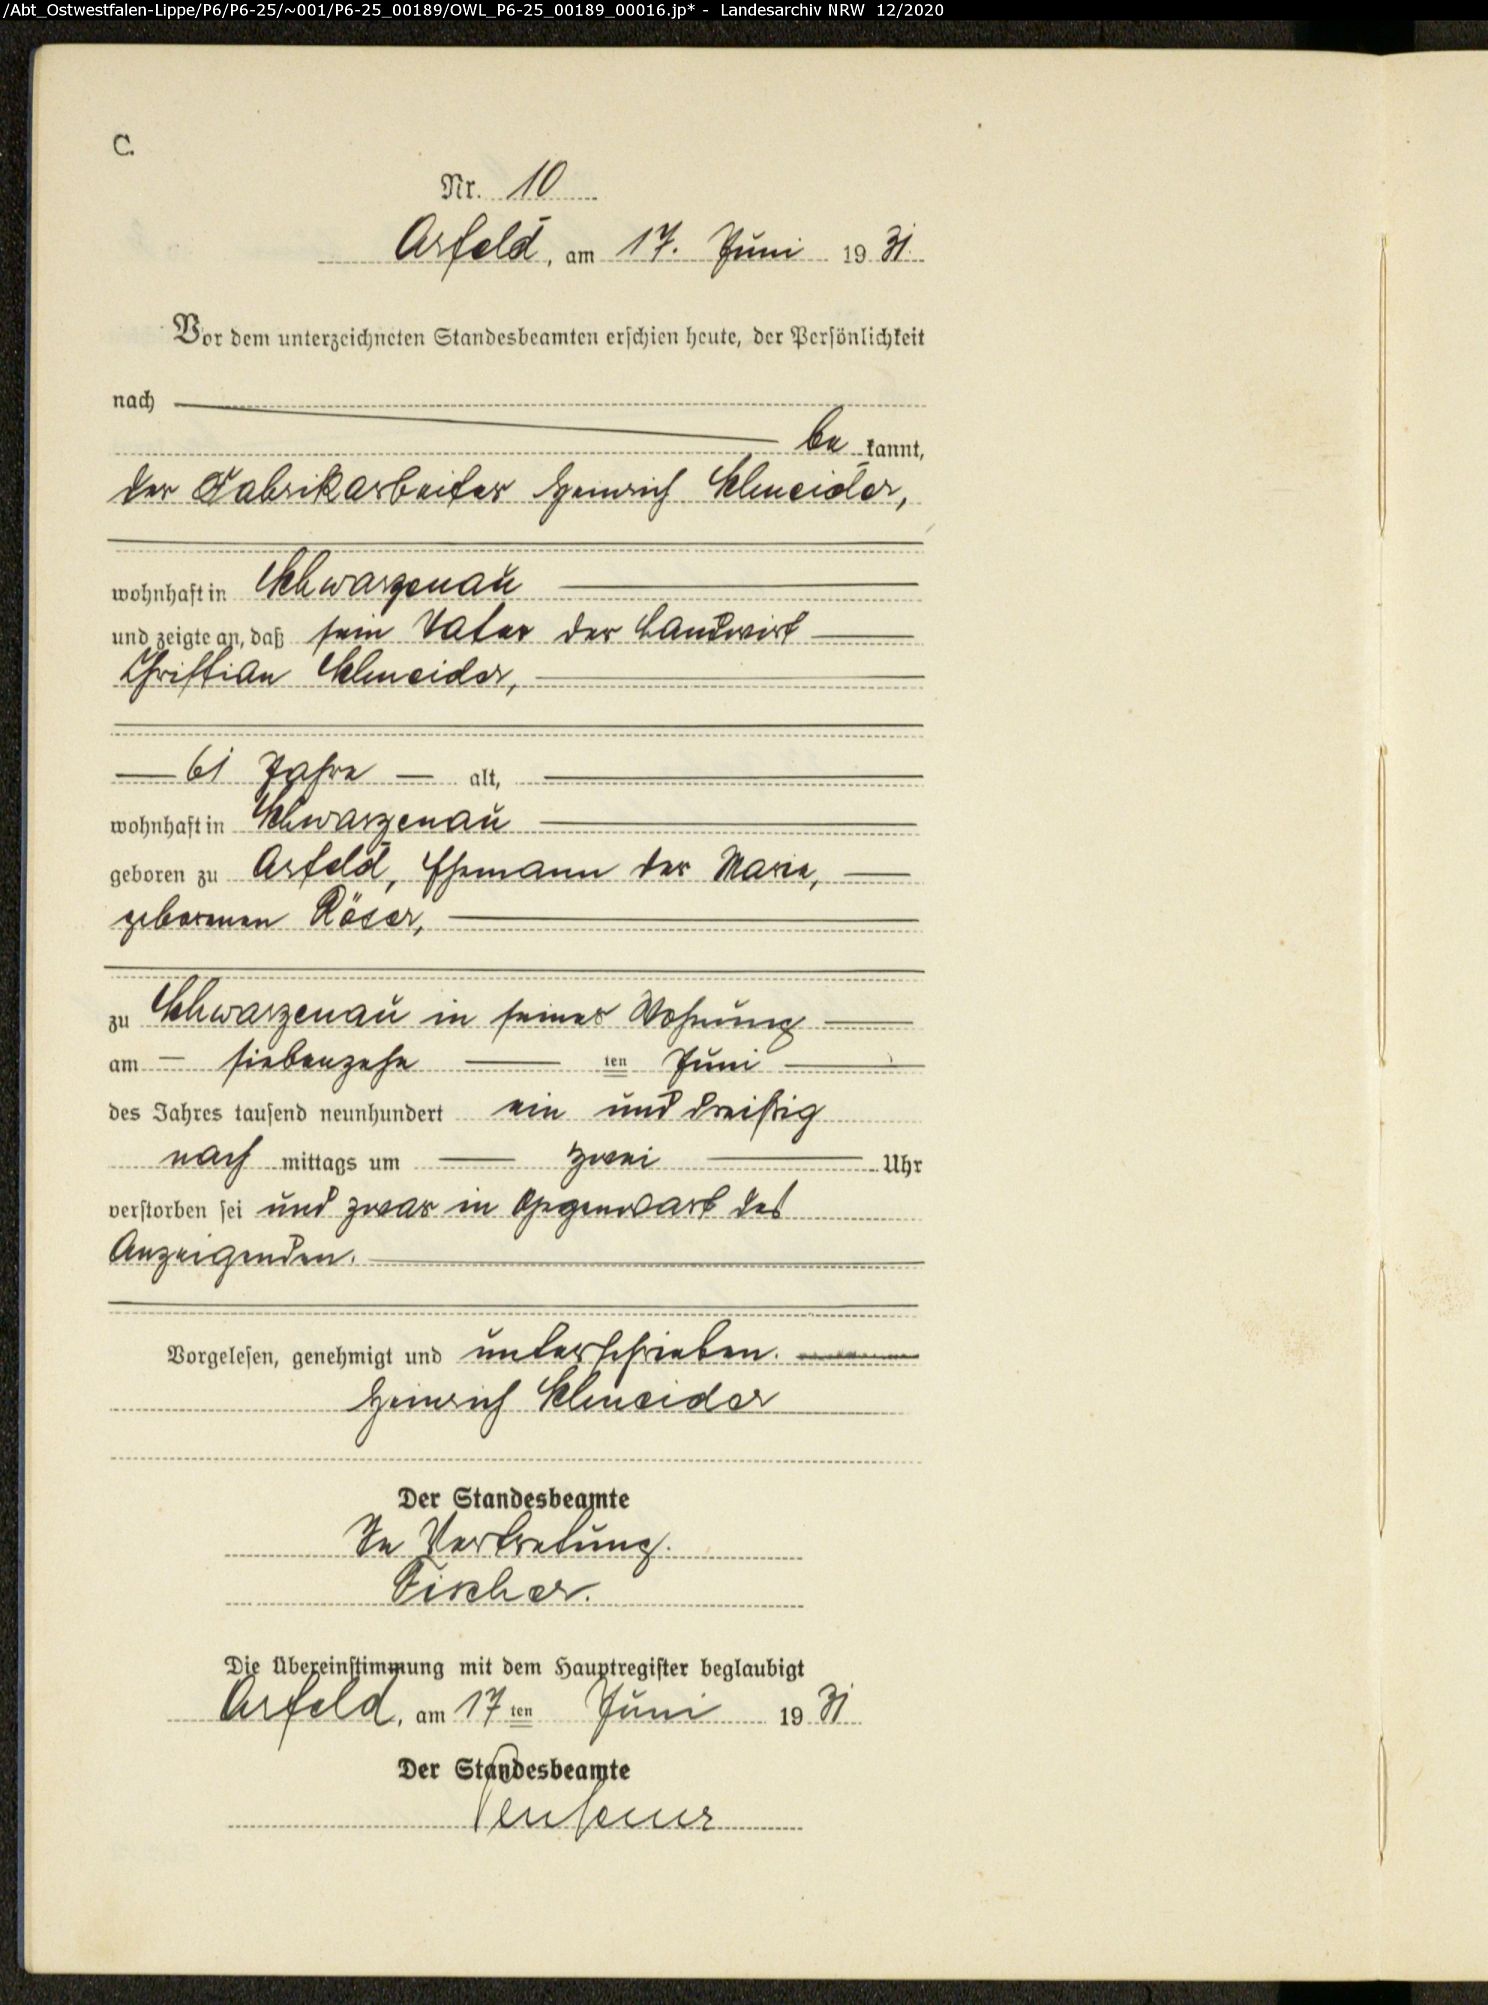 /Abt_Ostwestfalen-Lippe/P6/P6-25/~001/P6-25_00189/OWL_P6-25_00189_00016.jp* - Landesarchiv NRW 12/2020
C.
Nr. 10
Arfeld, am 17. Juni 1931.
Vor dem unterzeichneten Standesbeamten erschien heute, der Persönlichkeit
nach
be kannt,
der Fabrikarbeiter Heinrich Schneider,
wohnhaft in Schwarzenau
und zeigte an, daß sein Vater der Landwirt
Christian Schneider,
61 Jahre alt,
wohnhaft in Schwarzenau
geboren zu Arfeld, Ehemann der Marie,
geborenen Röser,
zu Schwarzenau in seiner Wohnung
am siebenzehn ten Juni
des Jahres tausend neunhundert ein und dreißig
nach mittags um zwei Uhr
verstorben sei und zwar in Gegenwart des
Anzeigenden.
Vorgelesen, genehmigt und unterschrieben.
Heinrich Schneider
Der Standesbeamte
In Vertretung.
Fischer.
Die Übereinstimmung mit dem Hauptregister beglaubigt
Arfeld, am 17 ten Juni 1931
Der Standesbeamte